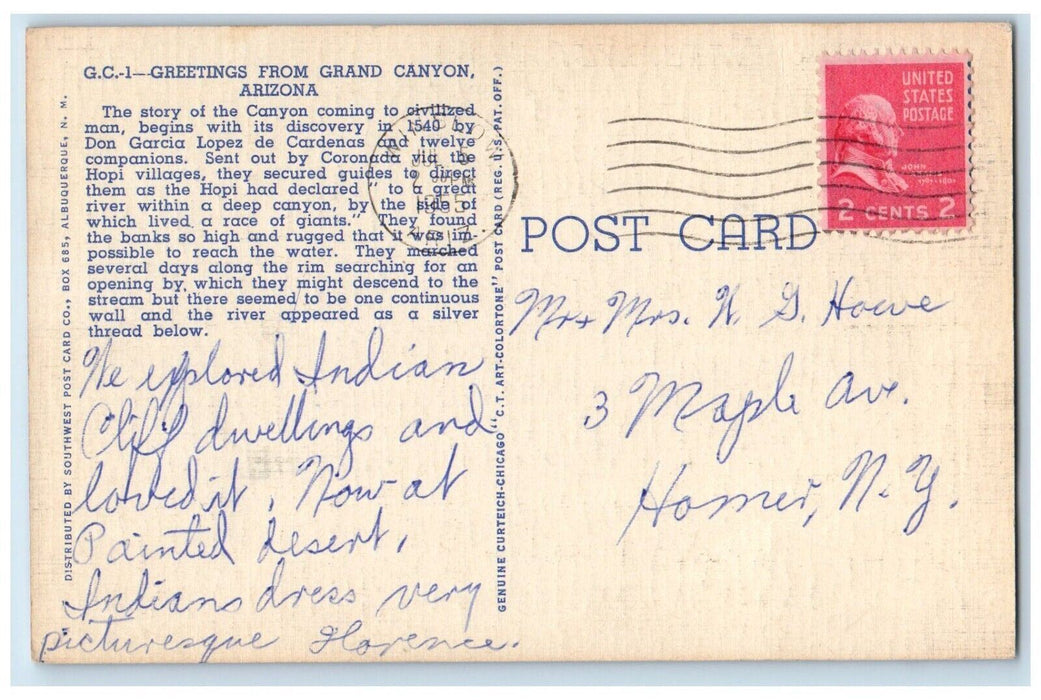 G.C.-1—GREETINGS FROM GRAND CANYON,
ARIZONA
The story of the Canyon coming to civilized
man, begins with its discovery in 1540 by
Don Garcia Lopez de Cardenas and twelve
companions. Sent out by Coronado via the
Hopi villages, they secured guides to direct
them as the Hopi had declared "to a great
river within a deep canyon, by the side of
which lived a race of giants." They found
the banks so high and rugged that it was im-
possible to reach the water. They marched
several days along the rim searching for an
opening by which they might descend to the
stream but there seemed to be one continuous
wall and the river appeared as a silver
thread below.
We explored Indian
Cliff dwellings and
loved it. Now at
Painted desert,
Indians dress very
picturesque Florence.
DISTRIBUTED BY SOUTHWEST POST CARD CO., BOX 685, ALBUQUERQUE, N. M.
GENUINE CURTEICH-CHICAGO "C.T. ART-COLORTONE" POST CARD (REG. U.S. PAT. OFF.)
WINSLOW
JUL
ARIZ.
UNITED
STATES
POSTAGE
JOHN
2 CENTS 2
POST CARD
Mr + Mrs. W. G. Howe
3 Maple Ave.
Homer, N.Y.